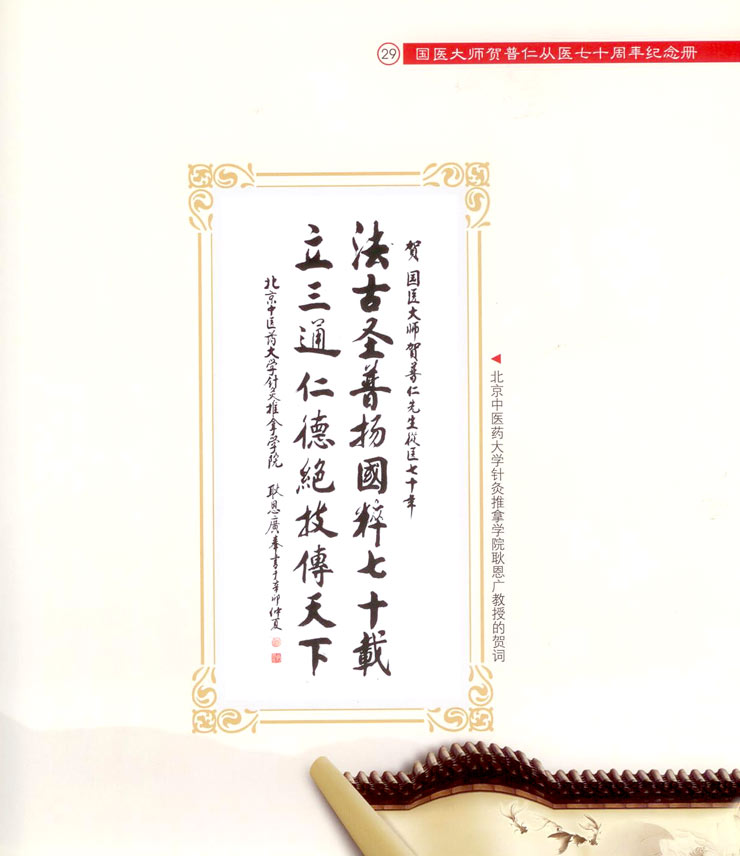 29 国医大师贺普仁从医七十周年纪念册
賀 国医大师贺普仁先生從医七十年
法古圣普扬國粹七十載
立三通仁德絶技傳天下
北京中医药大学针灸推拿学院 耿恩廣奉書于辛卯仲夏
北京中医药大学针灸推拿学院耿恩广教授的贺词